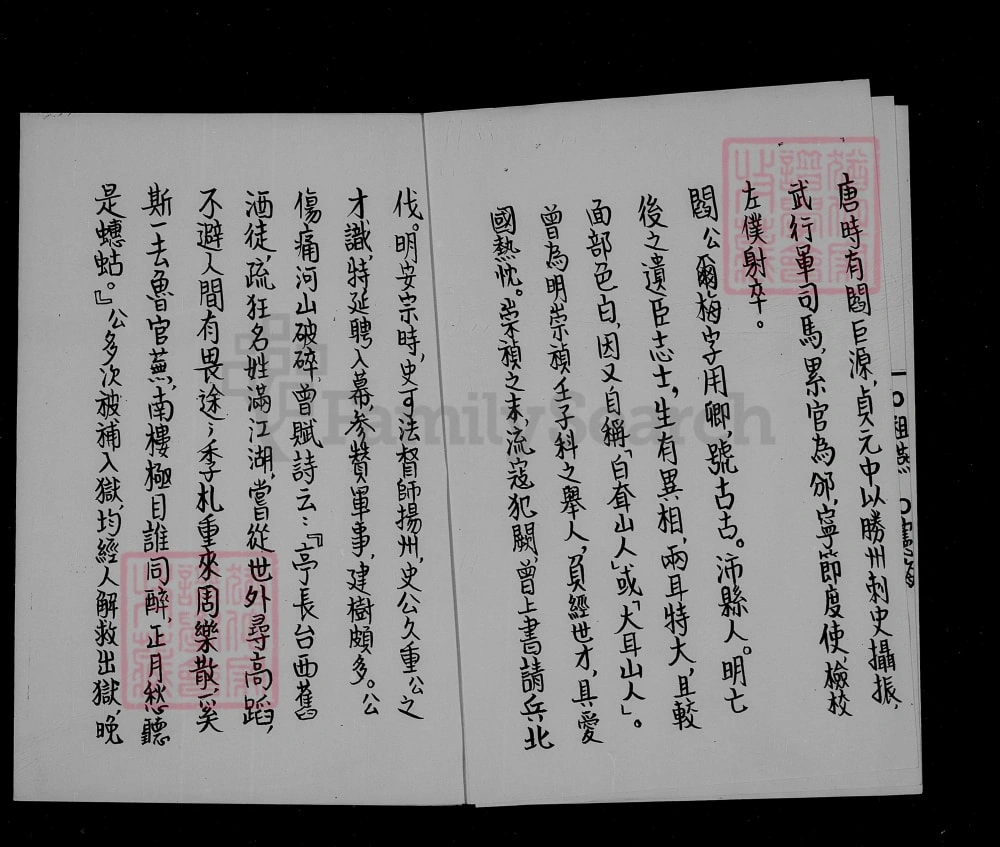 唐時有閻巨源，貞元中以勝州刺史攝振，
武行軍司馬，累官為邠，寧節度使，檢校
左僕射卒。
閻公爾梅字用卿，號古古。沛縣人。明七
後之遺臣志士，生有異相，兩耳特大，且較
面部色白，因又自稱「白耷山人」或「大耳山人」。
曾為明崇禎壬子科之舉人，負經世才，具愛
國熱忱。崇禎之末，流寇犯闕，曾上書請兵北
伐。明安宗時，史可法督師揚州，史公久重公之
才識，特延聘入幕，參贊軍事，建樹頗多。公
傷痛河山破碎，曾賦詩云：『亭長台西舊
酒徒，疏狂名姓滿江湖，嘗從世外尋高蹈，
不避人間有畏途；季札重來周樂散，奚
斯一去魯宮蕪，南樓極目誰同醉，正月愁聽
是蟪蛄。』公多次被補入獄，均經人解救出獄，晚
FamilySearch